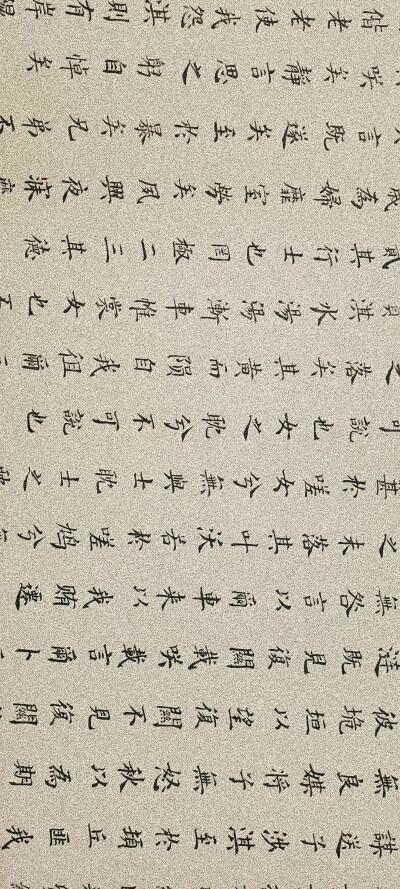 謀送子涉淇至於頓丘匪我
無良媒將子無怒秋以為期
彼垝垣以望復關不見復關
漣既見復關載咲載言爾卜
無咎言以爾車来以我賄遷
之未落其叶沃若於嗟鳩兮無
甚於嗟女兮無與士耽士之耽
可說也女之耽兮不可說也
之落矣其黃而隕自我徂爾三
貧淇水湯湯漸車帷裳女也不
貳其行士也罔極二三其德
歲為婦靡室勞矣夙興夜寐靡
言既遂矣至於暴矣兄弟不
咲矣靜言思之躬自悼矣
偕老老使我怨淇則有岸隰